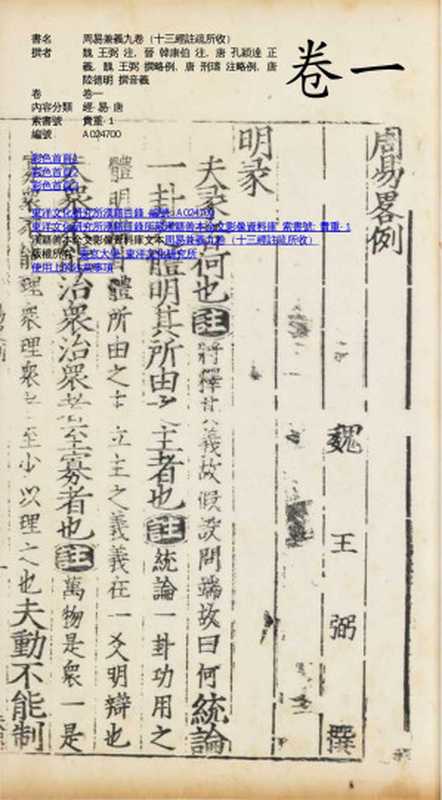 書名 周易兼義九卷（十三經註疏所收）
撰者 魏 王弼 注，晉 韓康伯 注，唐 孔穎達 正
義，魏 王弼 撰略例，唐 邢璹 注略例，唐
陸德明 撰音義
卷 卷一
內容分類 經-易-唐
索書號 貴重-1
編號 A024700
卷一
彩色首頁1
彩色首頁2
彩色首頁3
東洋文化研究所漢籍目錄 編號: A024700
東洋文化研究所漢籍目錄所藏漢籍善本全文影像資料庫 索書號: 貴重-1
漢籍善本全文影像資料庫文本周易兼義九卷（十三經註疏所收）
版權所有: 東京大學 東洋文化研究所
使用上的注意事項
周易畧例
魏 王 弼 撰
明彖
夫彖 何也註將釋其義故假設問端故曰何統論
一卦 體明其所由之主者也註統論一卦功用之
體明 體所由之主立主之義義在一爻明辯也
夫衆 治衆治衆者至寡者也註萬物是衆一是
能理衆理衆者至少以理之也夫動不能制